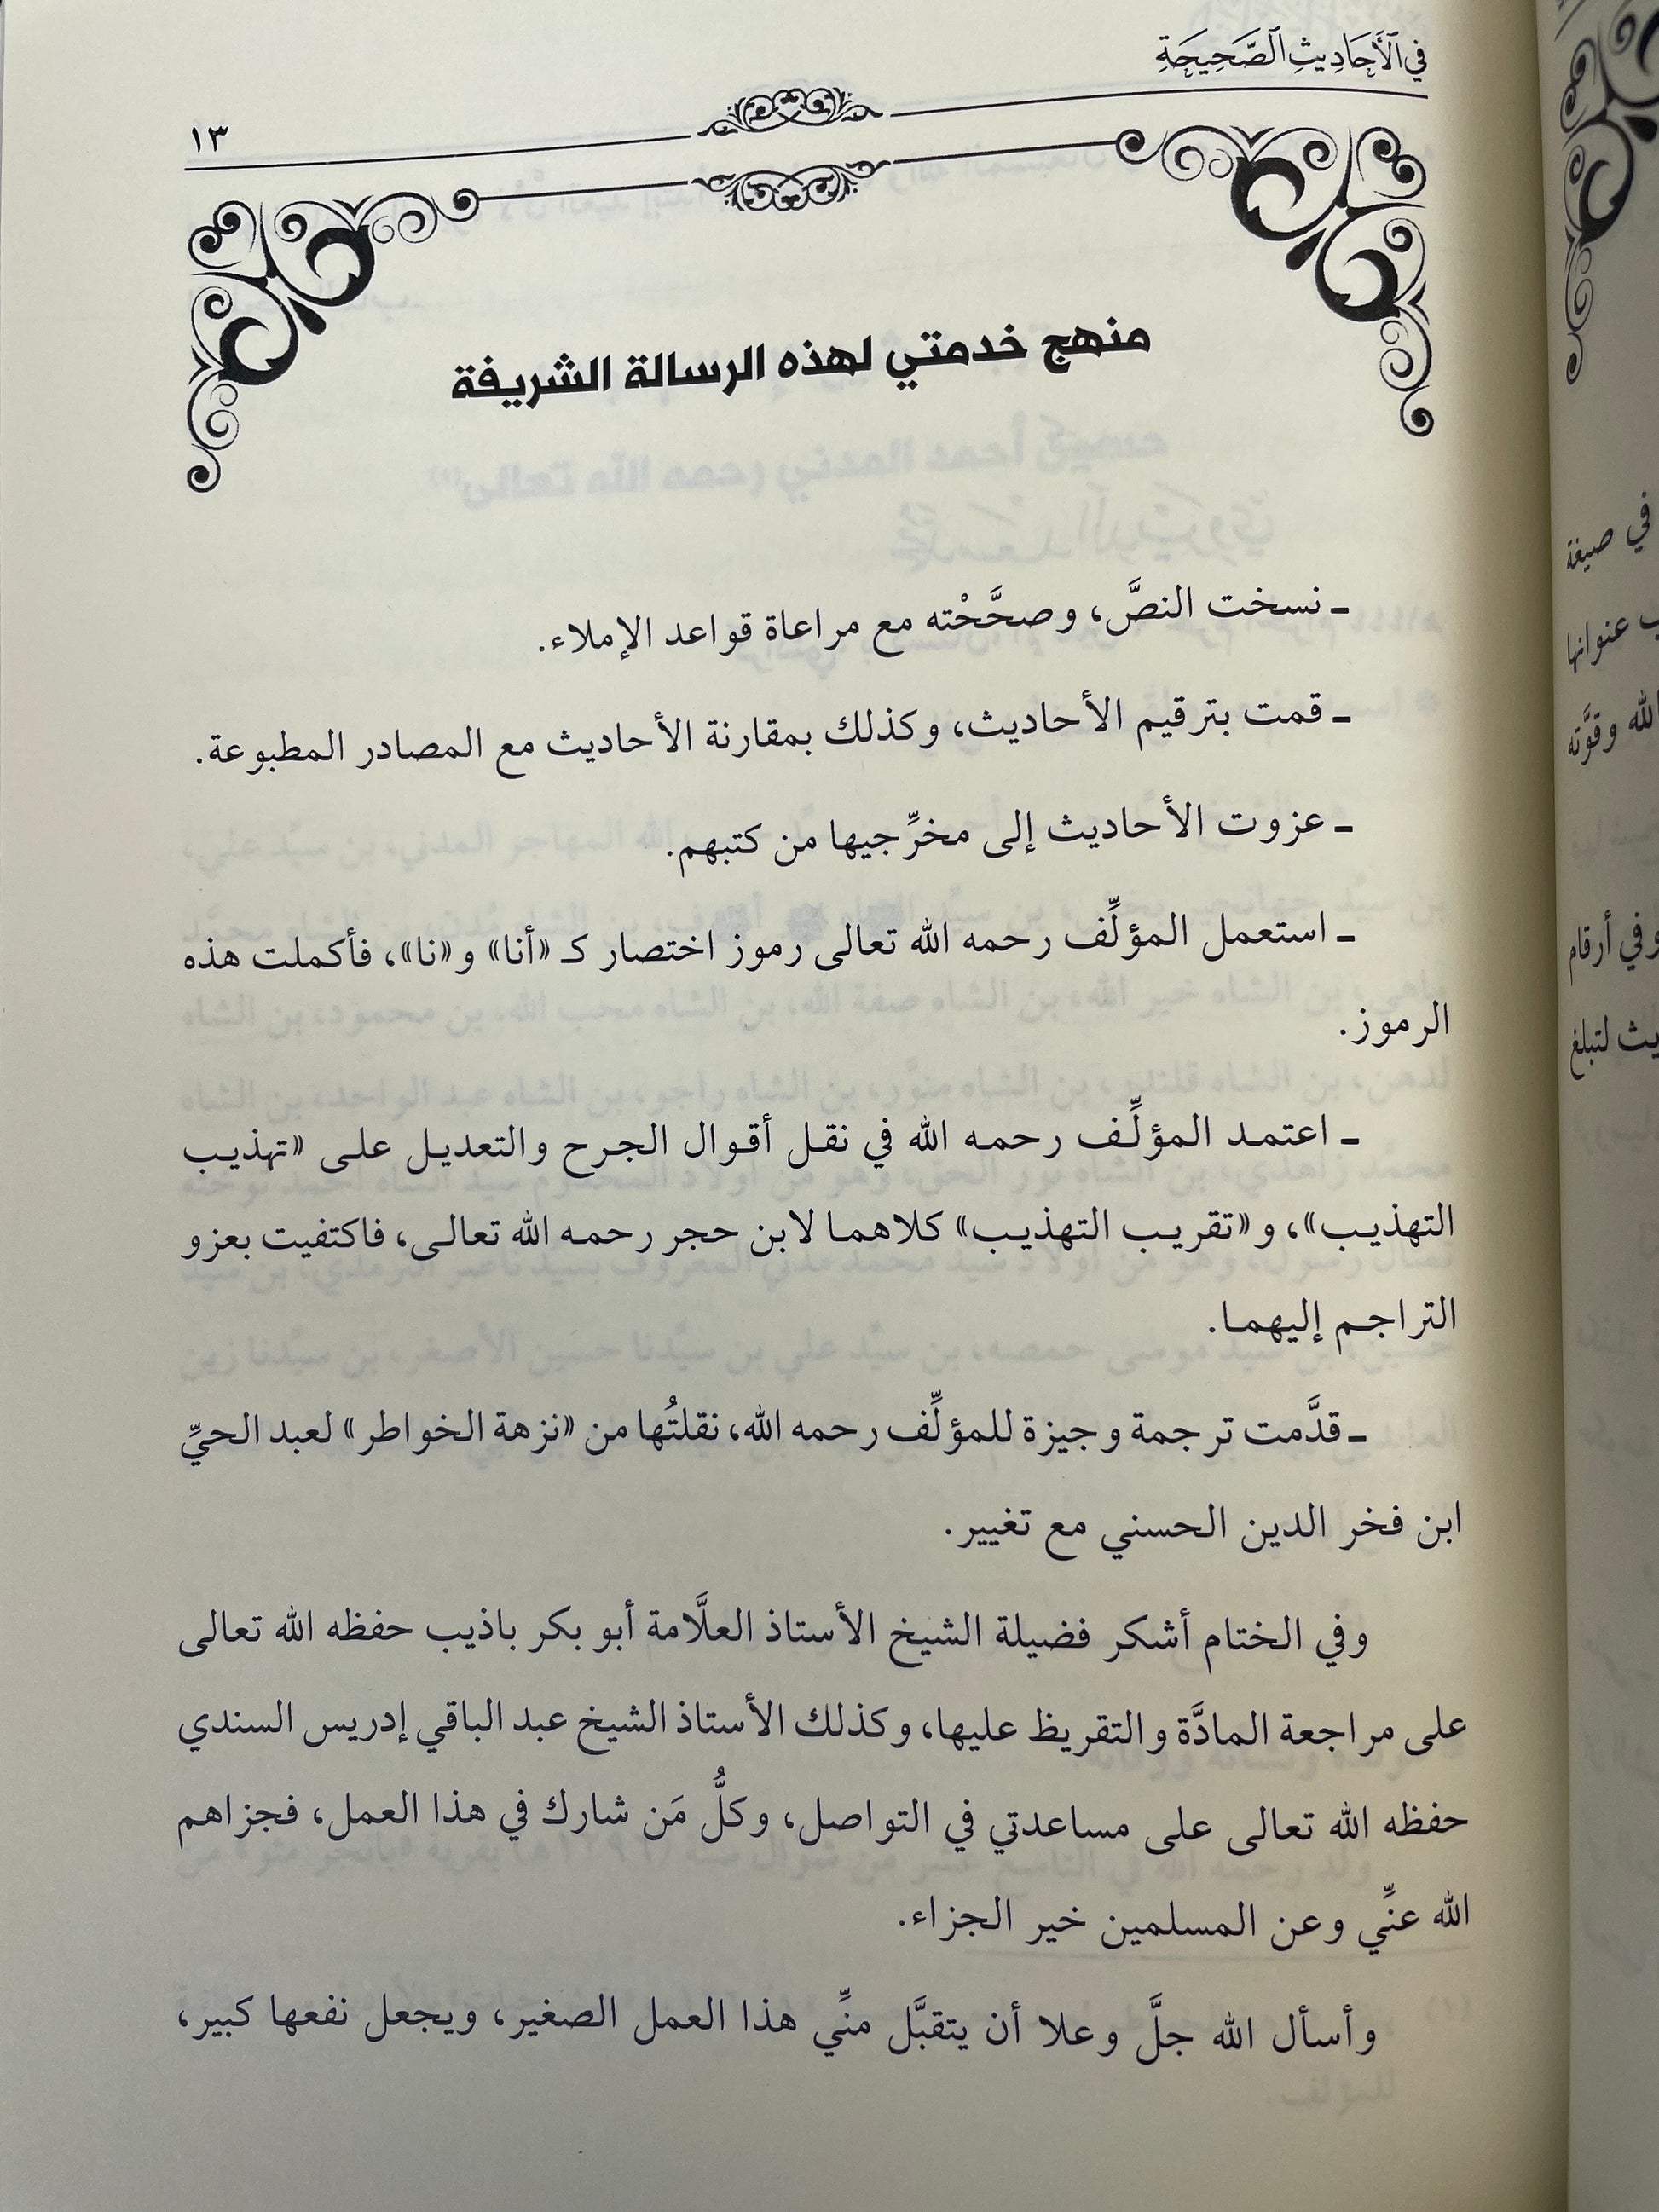 في الأَحَادِيثِ الصَّحِيحَةِ
١٣
منهج خدمتي لهذه الرسالة الشريفة
ـ نسخت النصَّ، وصحَّحْته مع مراعاة قواعد الإملاء.
ـ قمت بترقيم الأحاديث، وكذلك بمقارنة الأحاديث مع المصادر المطبوعة.
ـ عزوت الأحاديث إلى مخرِّجيها من كتبهم.
ـ استعمل المؤلِّف رحمه الله تعالى رموز اختصار كـ «أنا» و«نا»، فأكملت هذه
الرموز.
ـ اعتمد المؤلِّف رحمه الله في نقل أقوال الجرح والتعديل على «تهذيب
التهذيب»، و«تقريب التهذيب» كلاهما لابن حجر رحمه الله تعالى، فاكتفيت بعزو
التراجم إليهما.
ـ قدَّمت ترجمة وجيزة للمؤلِّف رحمه الله، نقلتُها من «نزهة الخواطر» لعبد الحيِّ
ابن فخر الدين الحسني مع تغيير.
وفي الختام أشكر فضيلة الشيخ الأستاذ العلَّامة أبو بكر باذيب حفظه الله تعالى
على مراجعة المادَّة والتقريظ عليها، وكذلك الأستاذ الشيخ عبد الباقي إدريس السندي
حفظه الله تعالى على مساعدتي في التواصل، وكلُّ مَن شارك في هذا العمل، فجزاهم
الله عنِّي وعن المسلمين خير الجزاء.
وأسأل الله جلَّ وعلا أن يتقبَّل منِّي هذا العمل الصغير، ويجعل نفعها كبير،
في صيغة
عنوانها
لله وقوَّته
وفي أرقام
لتبلغ